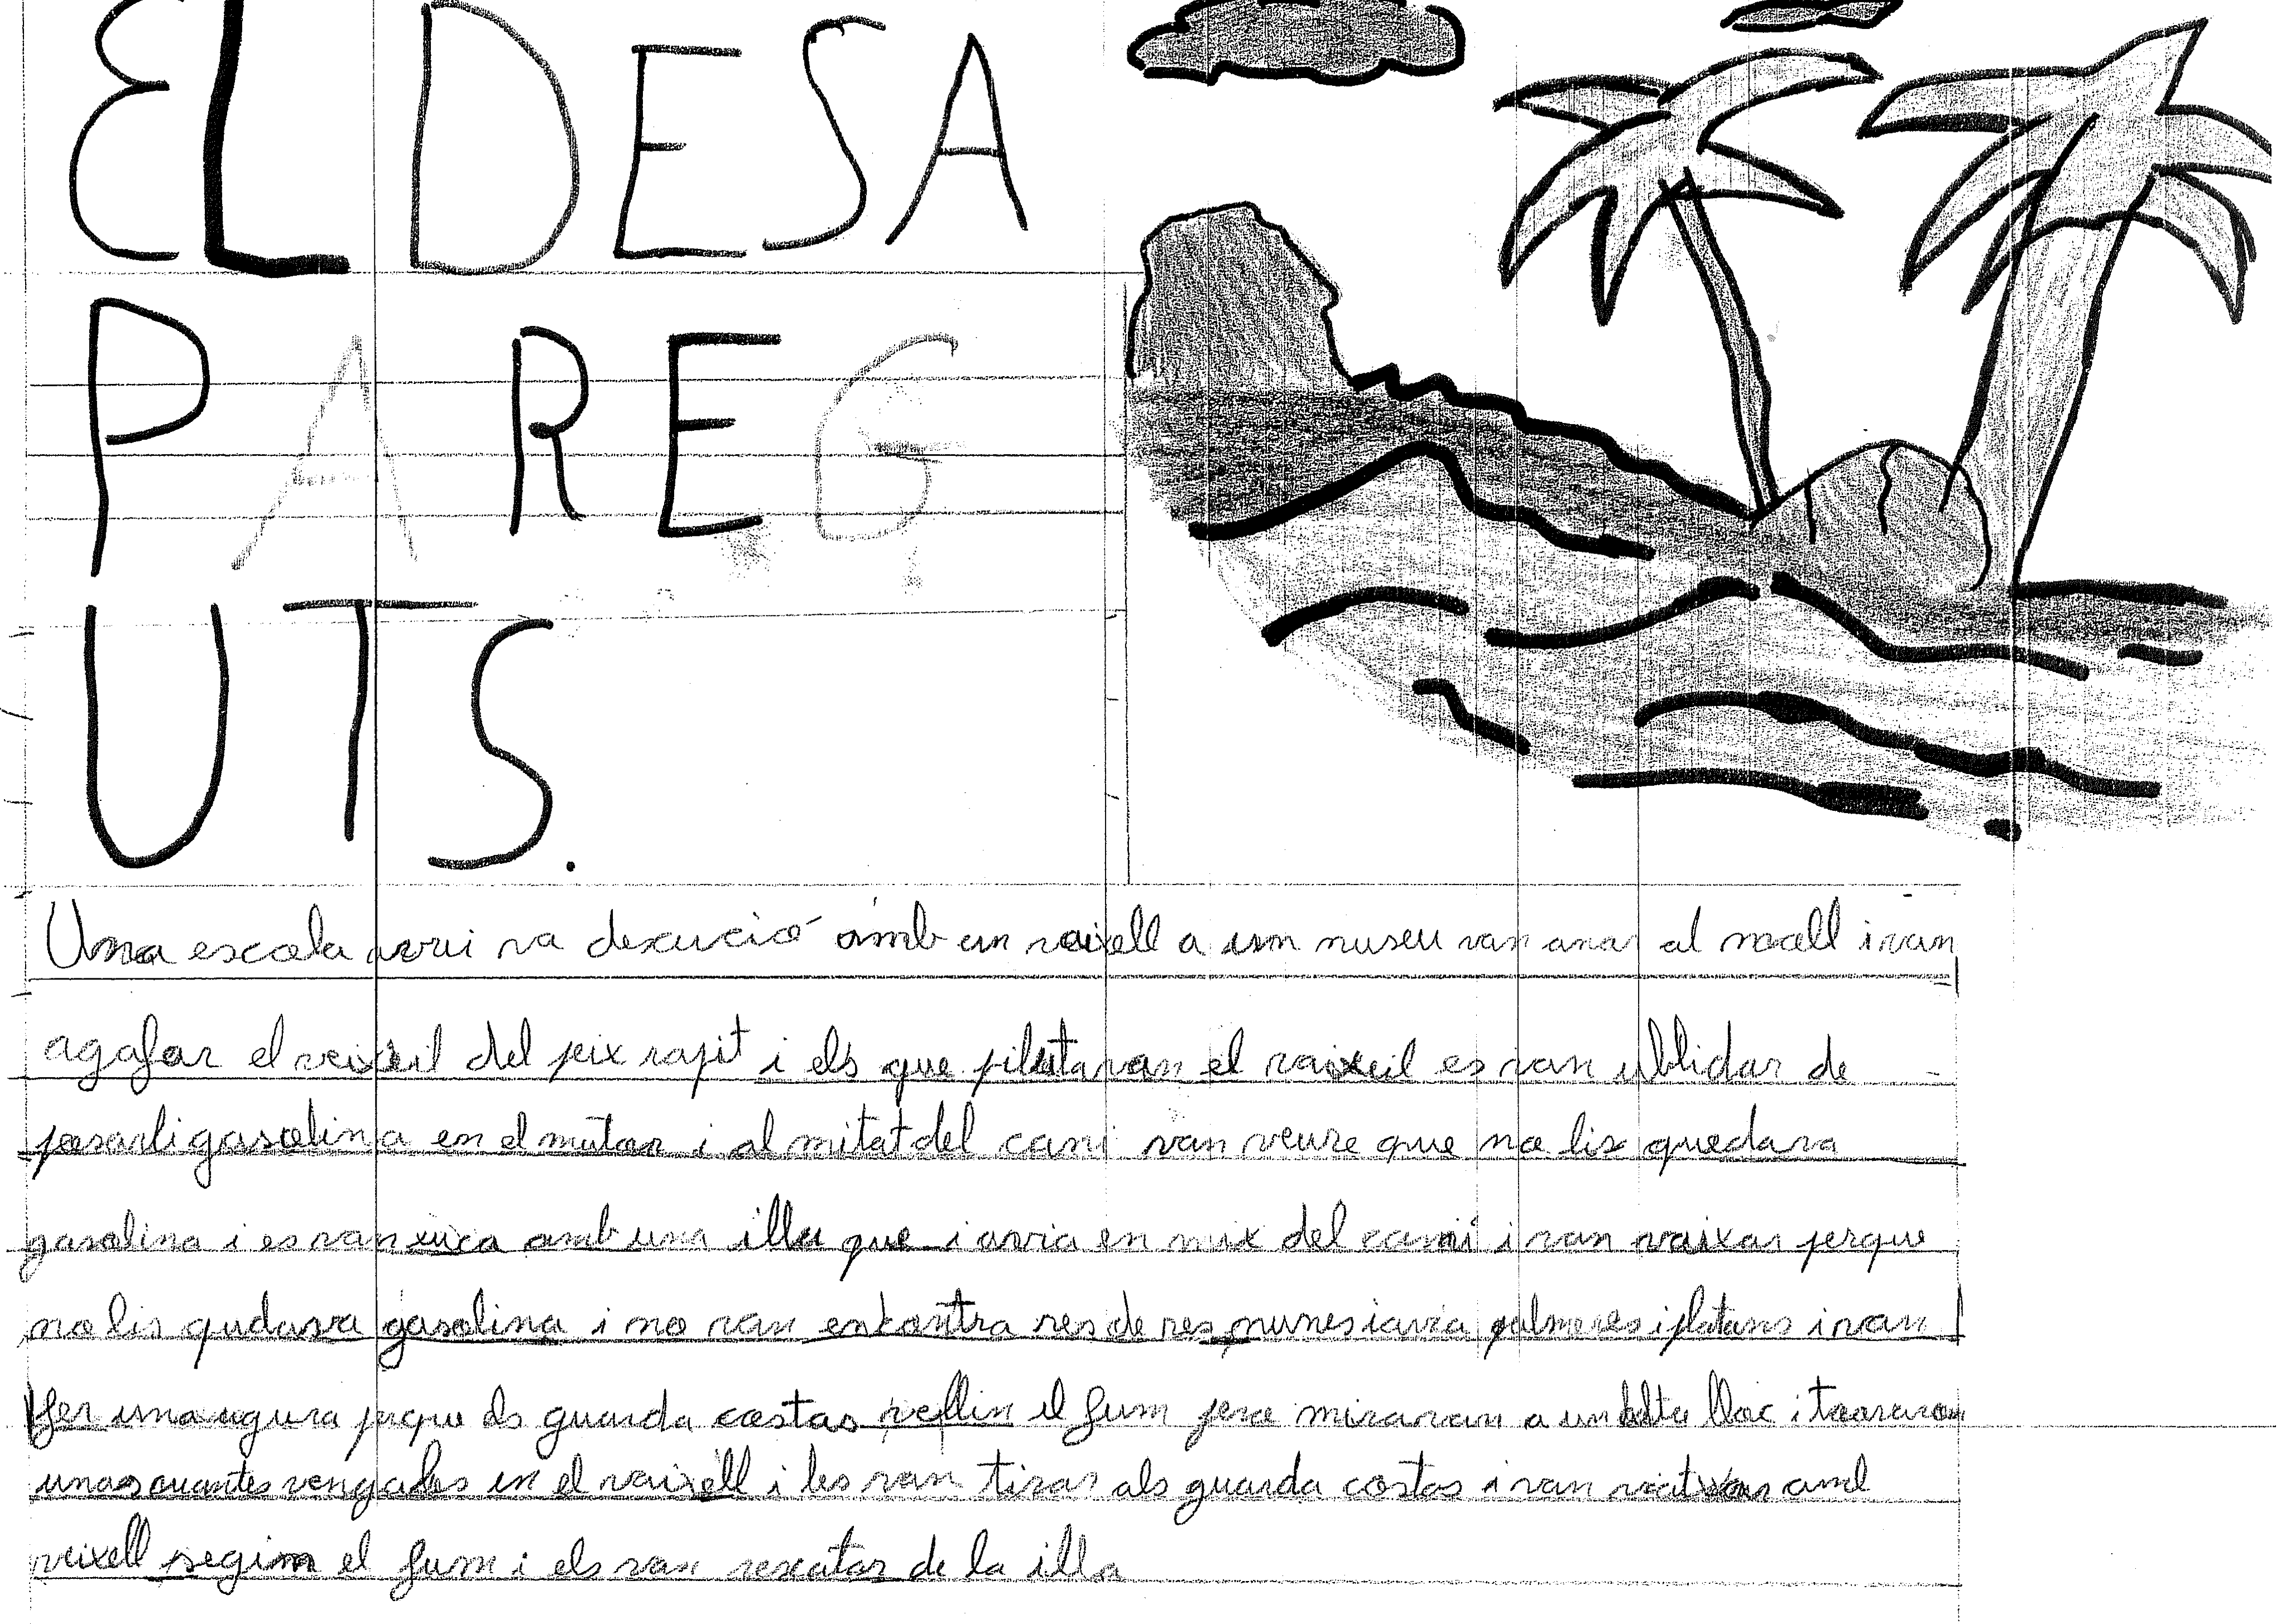 EL DESA
PAREG
UTS.
Una escola avui va dexcució amb un vaixell a un museu van anar al moll i van
agafar el veixeil del peix rapit i els que pilutavan el vaixeil es van ublidar de
posarli gasolina en el mutor i al mitat del cami van veure que no lis quedava
gasolina i es van xuca amb una illa que i avia en mix del camí i van vaixar perque
no lis qudava gasolina i no van enkontra res de res nunes iavia palmeres i platans i van
fer una ugura perque els guarda costas vellin el fum pero miravan a un altre lloc i
unas cuantes vengales en el vaixell i les van tirar als guarda costas i van amb
veixell segin el fum i els van rescatar de la illa